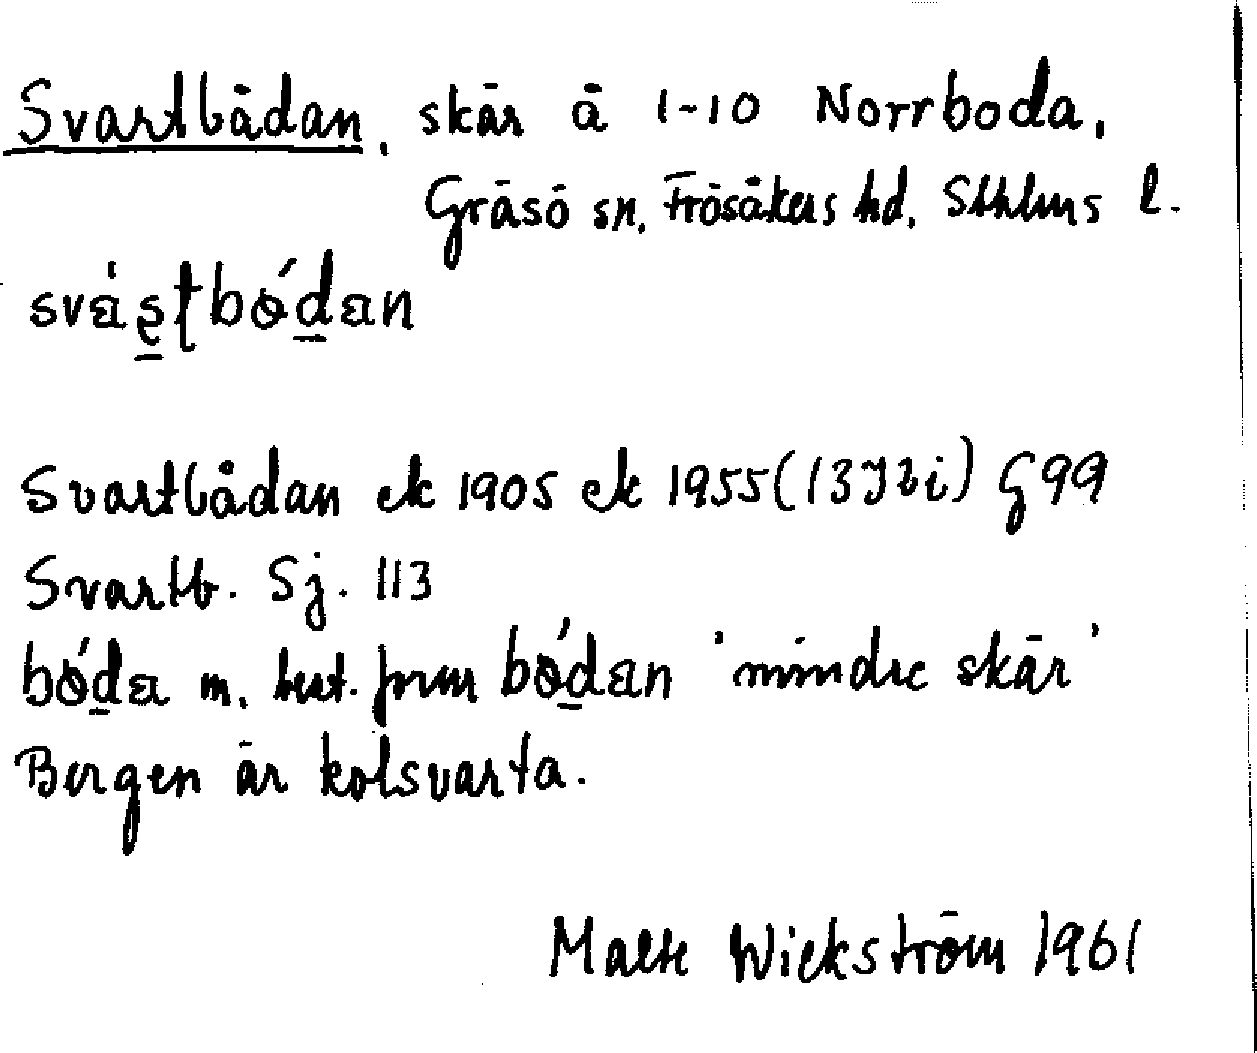 Svartbådan, skär å 1-10 Norrboda,
Gräsö sn, Frösåkers hd, Sthlms l.
svástbódan
Svartbådan ek 1905 ek 1955 (13I2i) G99
Svartb. Sj. 113
bóda m. best. form bódan 'mindre skär'
Bergen är kolsvarta.
Malte Wickström 1961